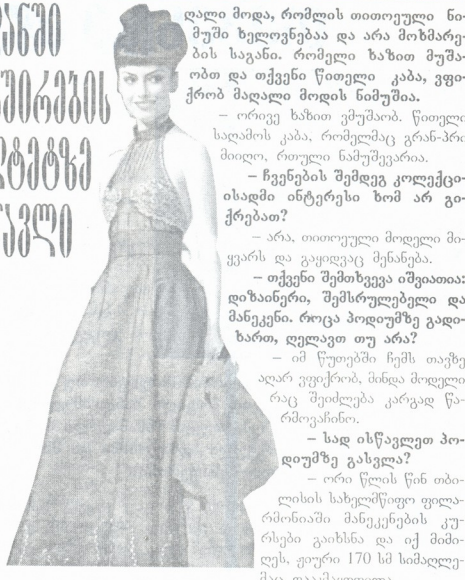 ღალი მოდა, რომლის თითოეული ნი-
მუში ხელოვნებაა და არა მოხმარე-
ბის საგანი. რომელი ხაზით მუშა-
ობთ და თქვენი წითელი კაბა, ვფი-
ქრობ მაღალი მოდის ნიმუშია.
– ორივე ხაზით ვმუშაობ. წითელი
საღამოს კაბა, რომელმაც გრან-პრი
მიიღო, რთული ნამუშევარია.
– ჩვენების შემდეგ კოლექცი-
ისადმი ინტერესი ხომ არ გი-
ქრებათ?
– არა, თითოეული მოდელი მი-
ყვარს და გაყიდვაც მენანება.
– თქვენი შემთხვევა იშვიათია:
დიზაინერი, შემსრულებელი და
მანეკენი. როცა პოდიუმზე გადი-
ხართ, ღელავთ თუ არა?
– იმ წუთებში ჩემს თავზე
აღარ ვფიქრობ, მინდა მოდელი
რაც შეიძლება კარგად წა-
რმოვაჩინო.
– სად ისწავლეთ პო-
დიუმზე გასვლა?
– ორი წლის წინ თბი-
ლისის სახელმწიფო ფილა-
რმონიაში მანეკენების კუ-
რსები გაიხსნა და იქ მიმი-
ღეს, ჟიური 170 სმ სიმაღლე-